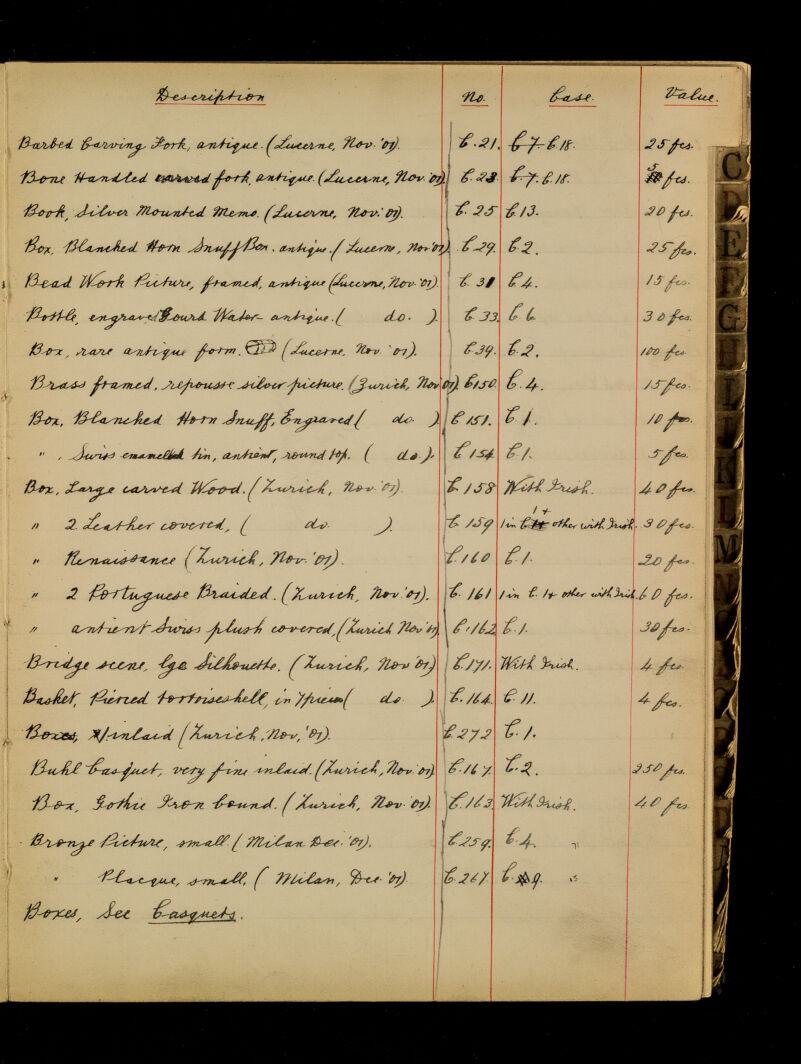 Description No. Case. Value.
Barbed Carving Fork, antique. (Lucerne, Nov. '01). C.21. C 7 C 18. 25 fcs.
Bone Handled carved fork, antique. (Lucerne, Nov. '01). C.23 C.7. C.18. 5 fcs.
Book, Silver Mounted Memo. (Lucerne, Nov. '01). C.25 C 13. 20 fcs.
Box, Blanched Horn Snuff Box. antique. (Lucerne, Nov. '01). C.29. C.2. 25 fcs.
Bead Work Picture, framed, antique (Lucerne, Nov. '01). C.31 C.4. 15 fcs.
Bottle, engraved Gourd Water- antique. ( do. ). C 33. C.6 30 fcs.
Box, rare antique form. (Lucerne. Nov. '01). C.39. C.2. 100 fcs
Brass framed, repousse silver picture. (Zurich, Nov '01). C150. C.4. 15 fcs.
Box, Blanched Horn Snuff, Engraved ( do ). C 151. C.1. 10 fcs.
" , Swiss enamelled tin, antient, round top. ( do ). C 154 C 1. 5 fcs.
Box, Large carved Wood. (Zurich, Nov. '01). C 158 With Irish. 40 fcs.
" 2 Leather covered, ( do. ). C 159 1 in C 14 other with Irish. 30 fcs.
" Renaissance (Zurich, Nov. '01). C.160 C.1. 20 fcs.
" 2 Portuguese Braided. (Zurich, Nov '01). C. 161 1 in C. 14 other with Irish. 60 fcs.
" antient Swiss plush covered, (Zurich Nov '01). C.162. C.1. 30 fcs.
Bridge scene, lge Silhouette. (Zurich, Nov '01) C.171. With Irish. 4 fcs
Basket, Pierced tortoiseshell, in 7 pieces ( do ). C.164. C. 11. 4 fcs.
Boxes, inlaid (Zurich, Nov, '01). C 272 C.1.
Buhl Casquet, very fine inlaid. (Zurich, Nov. '01) C.167. C.2. 250 fcs.
Box, Gothic Iron bound. (Zurich, Nov. '01). C.163. With Irish. 40 fcs
Bronze Picture, small. (Milan Dec. '01). C.259. C.4. "
" Placque, small, ( Milan, Dec. '01). C.267 C. 9. "
Boxes, See Casquets.
C
D
E
F
G
H
I
J
K
L
M
N